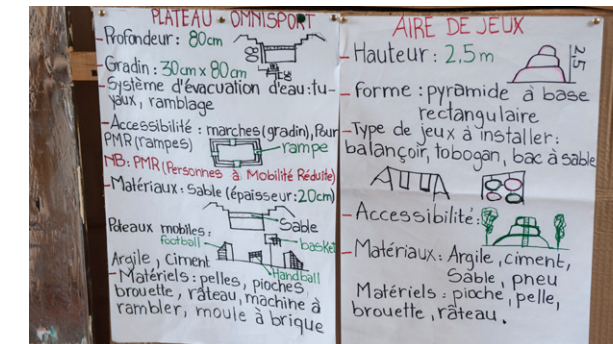 PLATEAU OMNISPORT
- Profondeur : 80cm
- Gradin : 30cm x 80cm
- Système d'évacuation d'eau : tu-
yaux, ramblage
- Accessibilité : marches (gradin), Pour
PMR (rampes)
rampe
NB: PMR (Personnes à Mobilité Réduite)
- Matériaux : Sable (épaisseur : 20cm)
Sable
Poteaux mobiles :
football
basket
Handball
Argile, Ciment
- Matériels : pelles, pioches,
brouette, râteau, machine à
rambler, moule à brique
AIRE DE JEUX
- Hauteur : 2,5 m
2,5
- forme : pyramide à base
rectangulaire
- Type de jeux à installer :
balançoir, tobogan, bac à sable
- Accessibilité :
- Matériaux : Argile, ciment,
Sable, pneu
Matériels : pioche, pelle,
brouette, râteau.